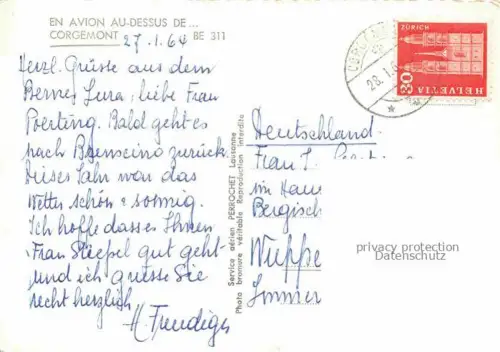 EN AVION AU-DESSUS DE...
CORGEMONT BE 311
27.1.64
Herzl. Grüsse aus dem
Berner Jura, liebe Frau
Poerting. Bald geht es
nach zurück.
Dieses Jahr war das
Wetter schön & sonnig.
Ich hoffe dass es Ihnen
Frau Stiepel gut geht
und ich grüsse Sie
recht herzlich
H. Freudiger
Service aérien PERROCHET Lausanne
Photo bromure véritable Reproduction interdite
ZÜRICH
80
HELVETIA
28.1.6
Deutschland
Frau
im Haus
Bergisch
Wuppe
Immer
privacy protection
Datenschutz